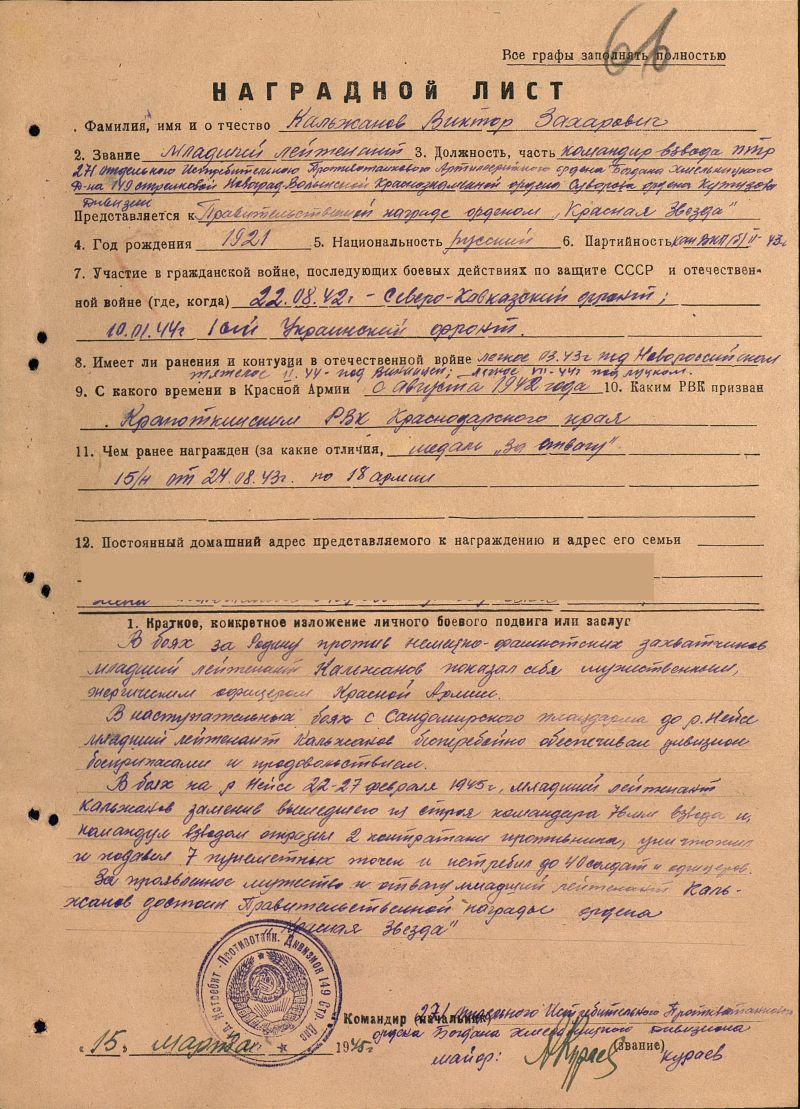 Все графы заполнять полностью
61
НАГРАДНОЙ ЛИСТ
. Фамилия, имя и о тчество Кальжанов Виктор Захарович
2. Звание Младший лейтенант 3. Должность, часть командир взвода ПТР
271 отдельного Истребительного Противотанкового Артиллерийского ордена Богдана Хмельницкого
Д-на 149 стрелковой Новоград-Волынской Краснознаменной ордена Суворова ордена Кутузова
дивизии
Представляется к Правительственной награде орденом „Красная Звезда"
4. Год рождения 1921 5. Национальность русский 6. Партийность кан ВКП(б) II-43г
7. Участие в гражданской войне, последующих боевых действиях по защите СССР и отечествен-
ной войне (где, когда) 22.08.42г - Северо-Кавказский фронт;
10.01.44г 1ый Украинский фронт.
8. Имеет ли ранения и контузии в отечественной войне легкое 03.43г под Новороссийском
тяжелое II.44- под Винницей; легкое VII-44г под Луцком.
9. С какого времени в Красной Армии с августа 1942 года 10. Каким РВК призван
. Кропоткинским РВК Краснодарского края
11. Чем ранее награжден (за какие отличия, медаль „За отвагу".
15/н от 24.08.43г. по 18 армии
12. Постоянный домашний адрес представляемого к награждению и адрес его семьи
1. Краткое, конкретное изложение личного боевого подвига или заслуг
В боях за Родину против немецко-фашистских захватчиков
младший лейтенант Кальжанов показал себя мужественным,
энергическим офицером Красной Армии.
В наступательных боях с Сандомирского плацдарма до р. Нейсе
младший лейтенант Кальжанов бесперебойно обеспечивал дивизион
боеприпасами и продовольствием.
В боях на р Нейсе 22-27 февраля 1945г, младший лейтенант
Кальжанов заменив вышедшего из строя командира 76мм взвода и
командуя взводом отразил 2 контратаки противника, уничтожил
и подавил 7 пулеметных точек и истребил до 40 солдат и офицеров.
За проявленное мужество и отвагу младший лейтенант Каль-
жанов достоин Правительственной награды ордена
„Красная Звезда"
Отд. Истребит.-Противотанк. Дивизион 149 Стр. Див.
Командир (начальник) 271 отдельного Истребительного Противотанкового
ордена Богдана Хмельницкого дивизиона
„15„ марта 1945г
майор: АКураев (звание) Кураев